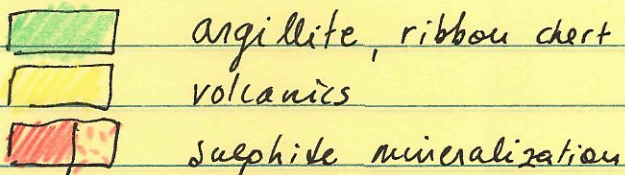 argillite, ribbon chert
volcanics
sulphide mineralization